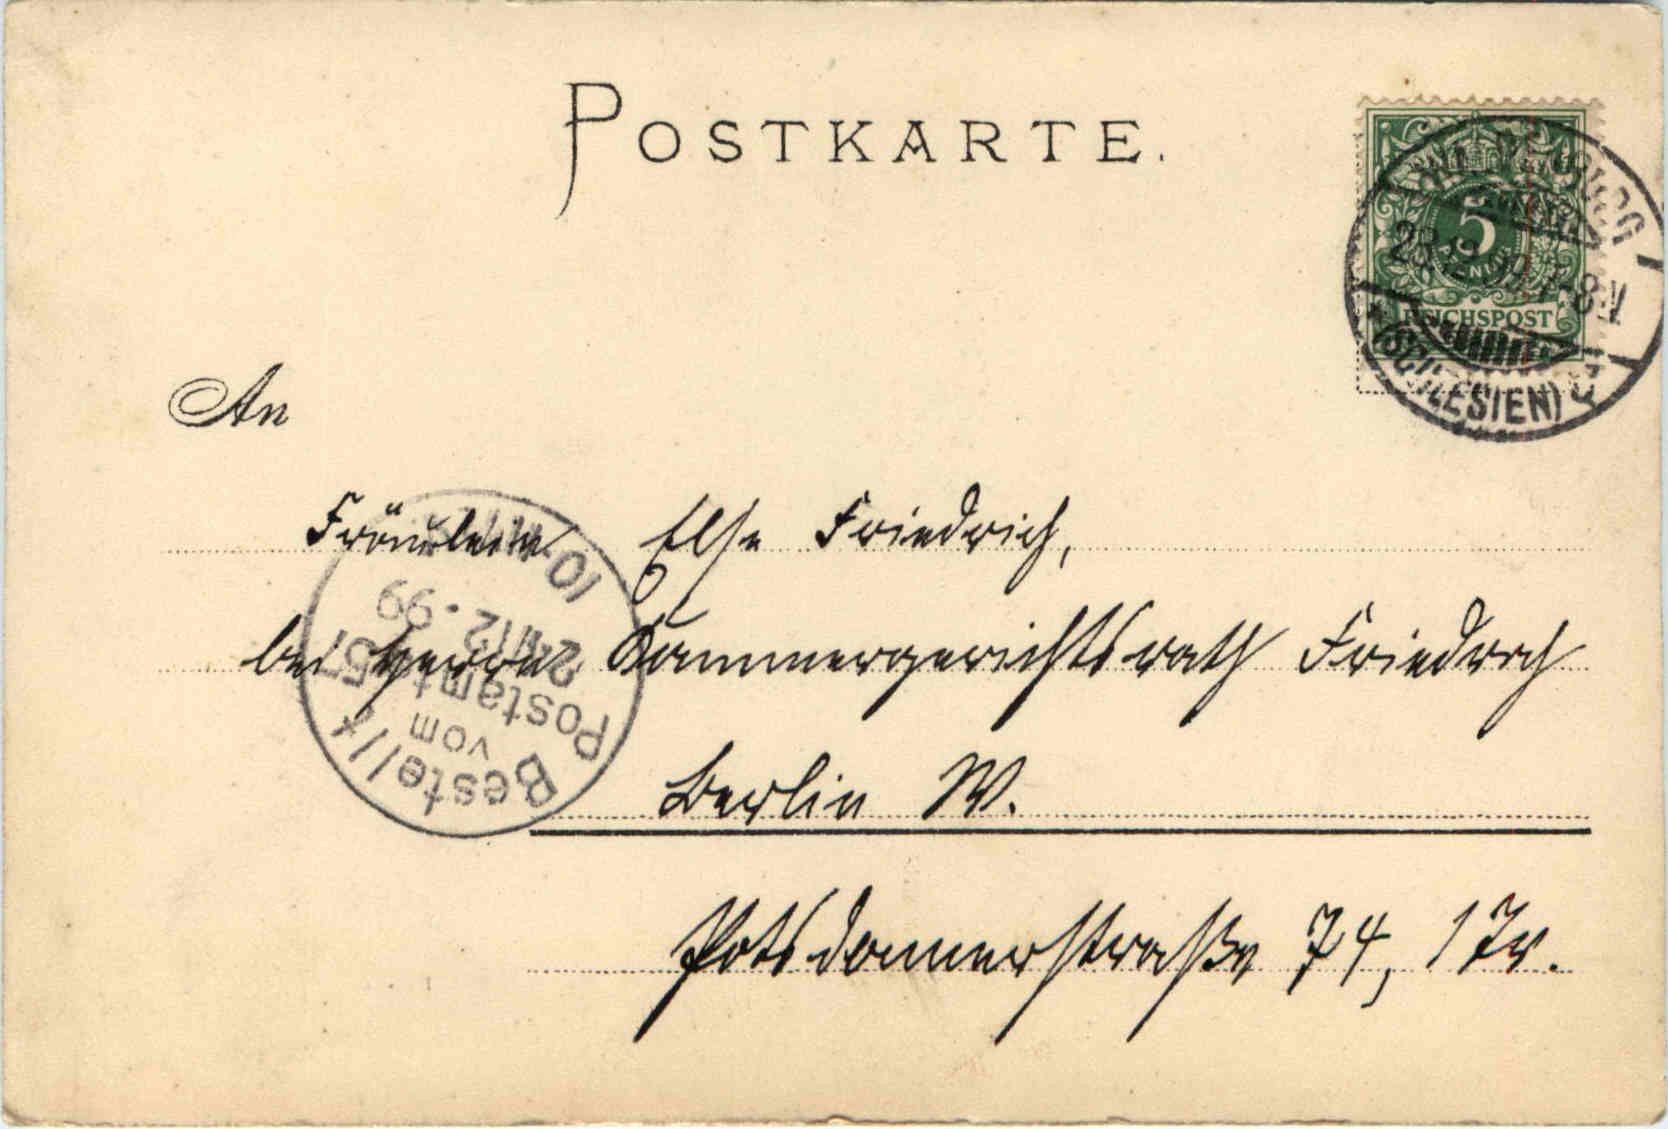 POSTKARTE.
5
PFENNIG
REICHSPOST
23.12.99.7-8V
(SCHLESIEN)
An
Fräulein Else Friedrich,
bei Herrn Kammergerichtsrath Friedrich
Berlin W.
Potsdamerstraße 74,
Bestellt
vom
Postamt 57
24/12.99